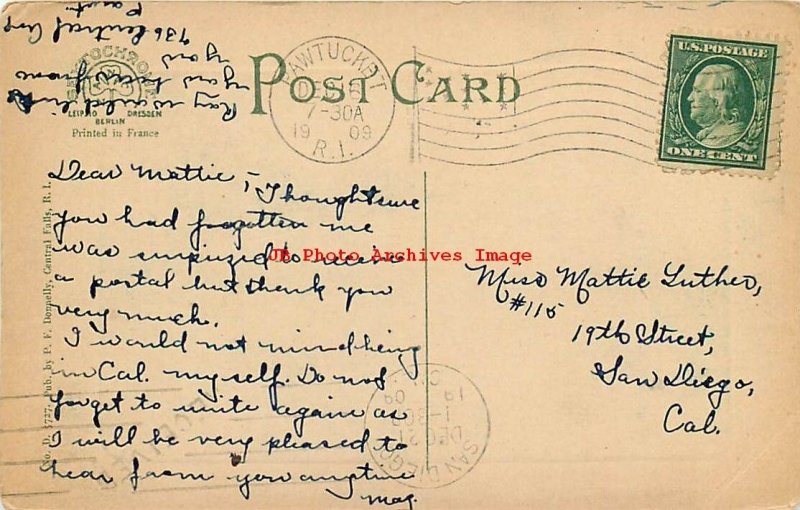 936 Central Ave
Ray would like
OCHROM
LEIPZIG DRESDEN
BERLIN
Printed in France
POST CARD
PAWTUCKET
DEC 16
7-30A
1909
R.I.
U.S. POSTAGE
ONE CENT
Dear Mattie, - I thought sure
you had forgotten me
was surpized to receive
a postal but thank you
very much.
I would not mind being
in Cal. myself. Do not
forget to write again as
I will be very pleased to
hear from you anytime
Mag.
JB Photo Archives Image
Miss Mattie Luther,
#115
19th Street,
San Diego,
Cal.
SAN DIEGO
DEC 21
1909
RECEIVED
No. D. 5727. Pub. by P. F. Donnelly, Central Falls, R. I.